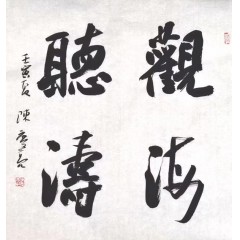 觀海
聽濤
壬寅夏 陳